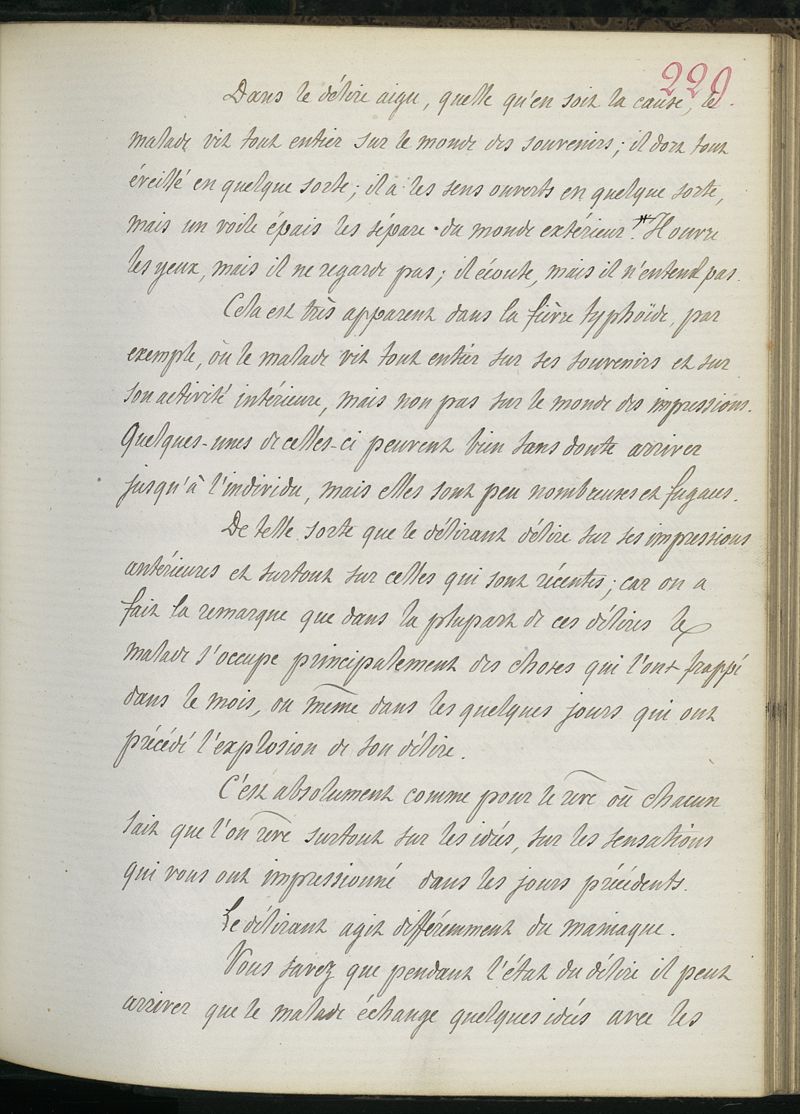 229
Dans le délire aigu, quelle qu'en soit la cause, le
malade vit tout entier sur le monde des souvenirs; il dort tout
éveillé en quelque sorte; il a les sens ouverts en quelque sorte,
mais un voile épais les sépare du monde extérieur.* Il ouvre
les yeux, mais il ne regarde pas; il écoute, mais il n'entend pas.
Cela est très apparent dans la fièvre typhoïde, par
exemple, où le malade vit tout entier sur ses souvenirs et sur
son activité intérieure, mais non pas sur le monde des impressions.
Quelques-unes de celles-ci peuvent bien sans doute arriver
jusqu'à l'individu, mais elles sont peu nombreuses et fugaces.
De telle sorte que le délirant délire sur ses impressions
antérieures et surtout sur celles qui sont récentes; car on a
fait la remarque que dans la plupart de ces délires le
malade s'occupe principalement des choses qui l'ont frappé
dans le mois, ou même dans les quelques jours qui ont
précédé l'explosion de son délire.
C'est absolument comme pour le rêve où chacun
sait que l'on rêve surtout sur les idées, sur les sensations
qui vous ont impressionné dans les jours précédents.
Le délirant agit différemment du maniaque.
Vous savez que pendant l'état du délire il peut
arriver que le malade échange quelques idées avec les